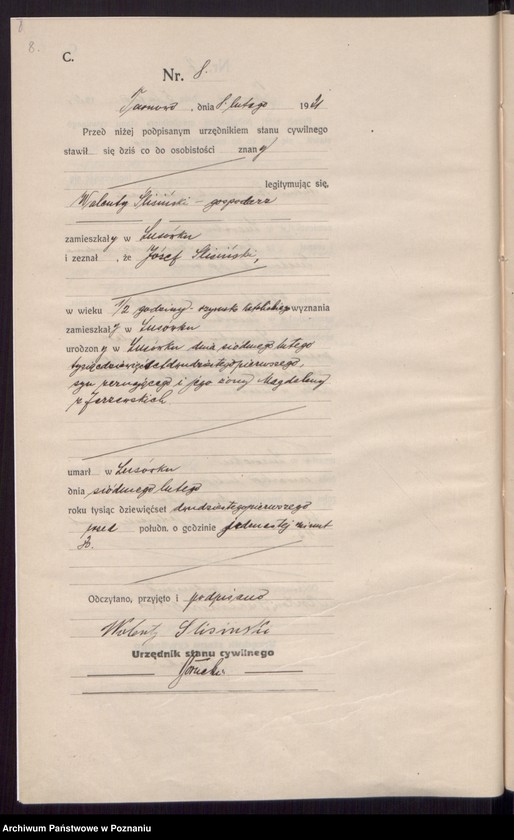 8.
C.
Nr. 8.
Tarnowo, dnia 8. lutego 1921
Przed niżej podpisanym urzędnikiem stanu cywilnego
stawił się dziś co do osobistości znany
legitymując się,
Walenty Slisiński - gospodarz
zamieszkały w Lusówku
i zeznał, że Józef Slisiński,
w wieku 1/2 godziny - rzymsko katolickiego wyznania
zamieszkały w Lusówku
urodzony w Lusówku dnia siódmego lutego
tysiącdziewięćsetdwudziestegopierwszego,
syn zeznającego i jego żony Magdaleny
z
umarł w Lusówku
dnia siódmego lutego
roku tysiąc dziewięćset dwudziestegopierwszego
przed połudn. o godzinie jedenastej minut
30.
Odczytano, przyjęto i podpisano
Walenty Slisinski
Urzędnik stanu cywilnego
Archiwum Państwowe w Poznaniu